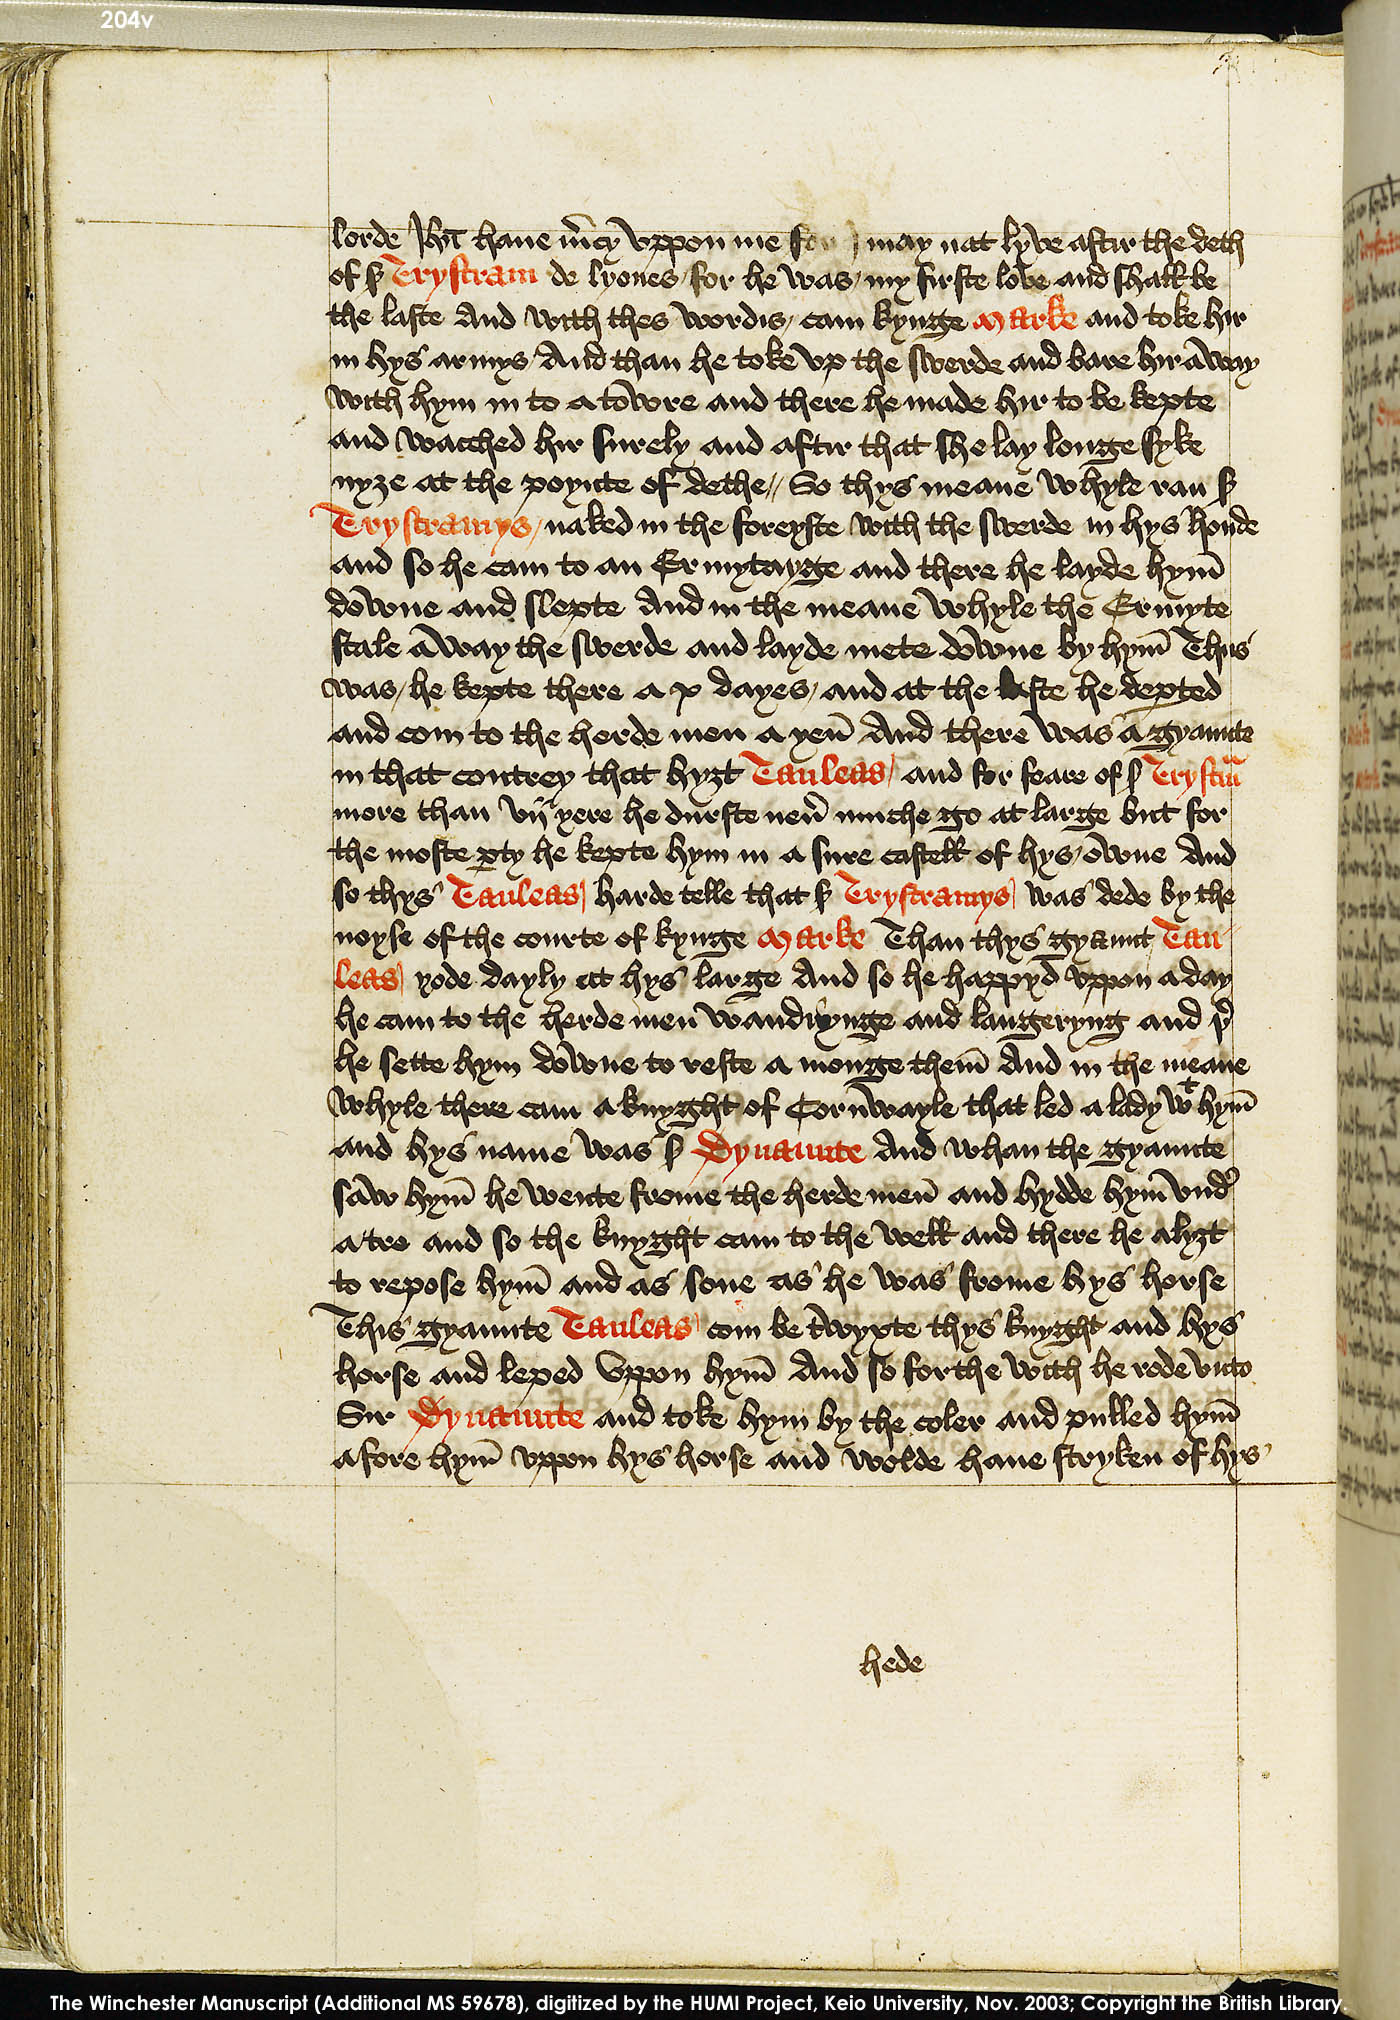 204v
lorde Jhu haue mcy vppon me for I may nat lyve aftir the deth
of sʳ Trystram de lyones / for he was / my firste love and shall be
the laste And with thes wordis / cam kynge Marke and toke hir
in hys armys And than he toke vp the swerde and bare hir away
with hym in to a towre and there he made hir to be kepte
and wacched hir surely and aftir that she lay longe syke
nyȝe at the poynte of dethe // So thys meane whyle ran sʳ
Trystramys / naked in the foreyste with the swerde in hys honde
and so he cam to an Ermytayge and there he layde hym̄
downe and slepte And in the meane whyle the Ermyte
stale away the swerde and layde mete downe by hym̄ Thus
was / he kepte there a x dayes / and at the laste he depted
and com to the herde men a yen̄ And there was a gyaunte
in that contrey that hyȝt Tauleas / and for feare of sʳ Trystrᵃm
more than vij yere he durste neū muche go at large but for
the moste pty he kepte hym in a sure castell of hys / owne And
so thys Tauleas / harde telle that sʳ Trystramys / was dede by the
noyse of the courte of kynge Marke Than thys gyaunt Tau
leas / yode dayly at hys large And so he happyd vppon a day
he cam to the herde men wandrynge and langeryng and þʳ
he sette hym downe to reste a monge them̄ And in the meane
whyle there cam a knyght of Cornwayle that led a lady wᵗ hym̄
and hys name was sʳ Dynaunte And whan the gyaunte
saw hym̄ he wente frome the herde men̄ and hydde hym̄ vndʳ
a tre and so the knyght cam to the well and there he alyȝt
to repose hym̄ and as sone as he was frome hys horse
This gyaunte Tauleas / com be twyxte thys knyght and hys
horse and leped vppon hym̄ And so forthe with he rode vnto
Sir Dynaunte and toke hym by the coler and pulled hym̄
afore hym̄ vppon hys horse and wolde haue stryken of hys
hede
The Winchester Manuscript (Additional MS 59678), digitized by the HUMI Project, Keio University, Nov. 2003; Copyright the British Library.